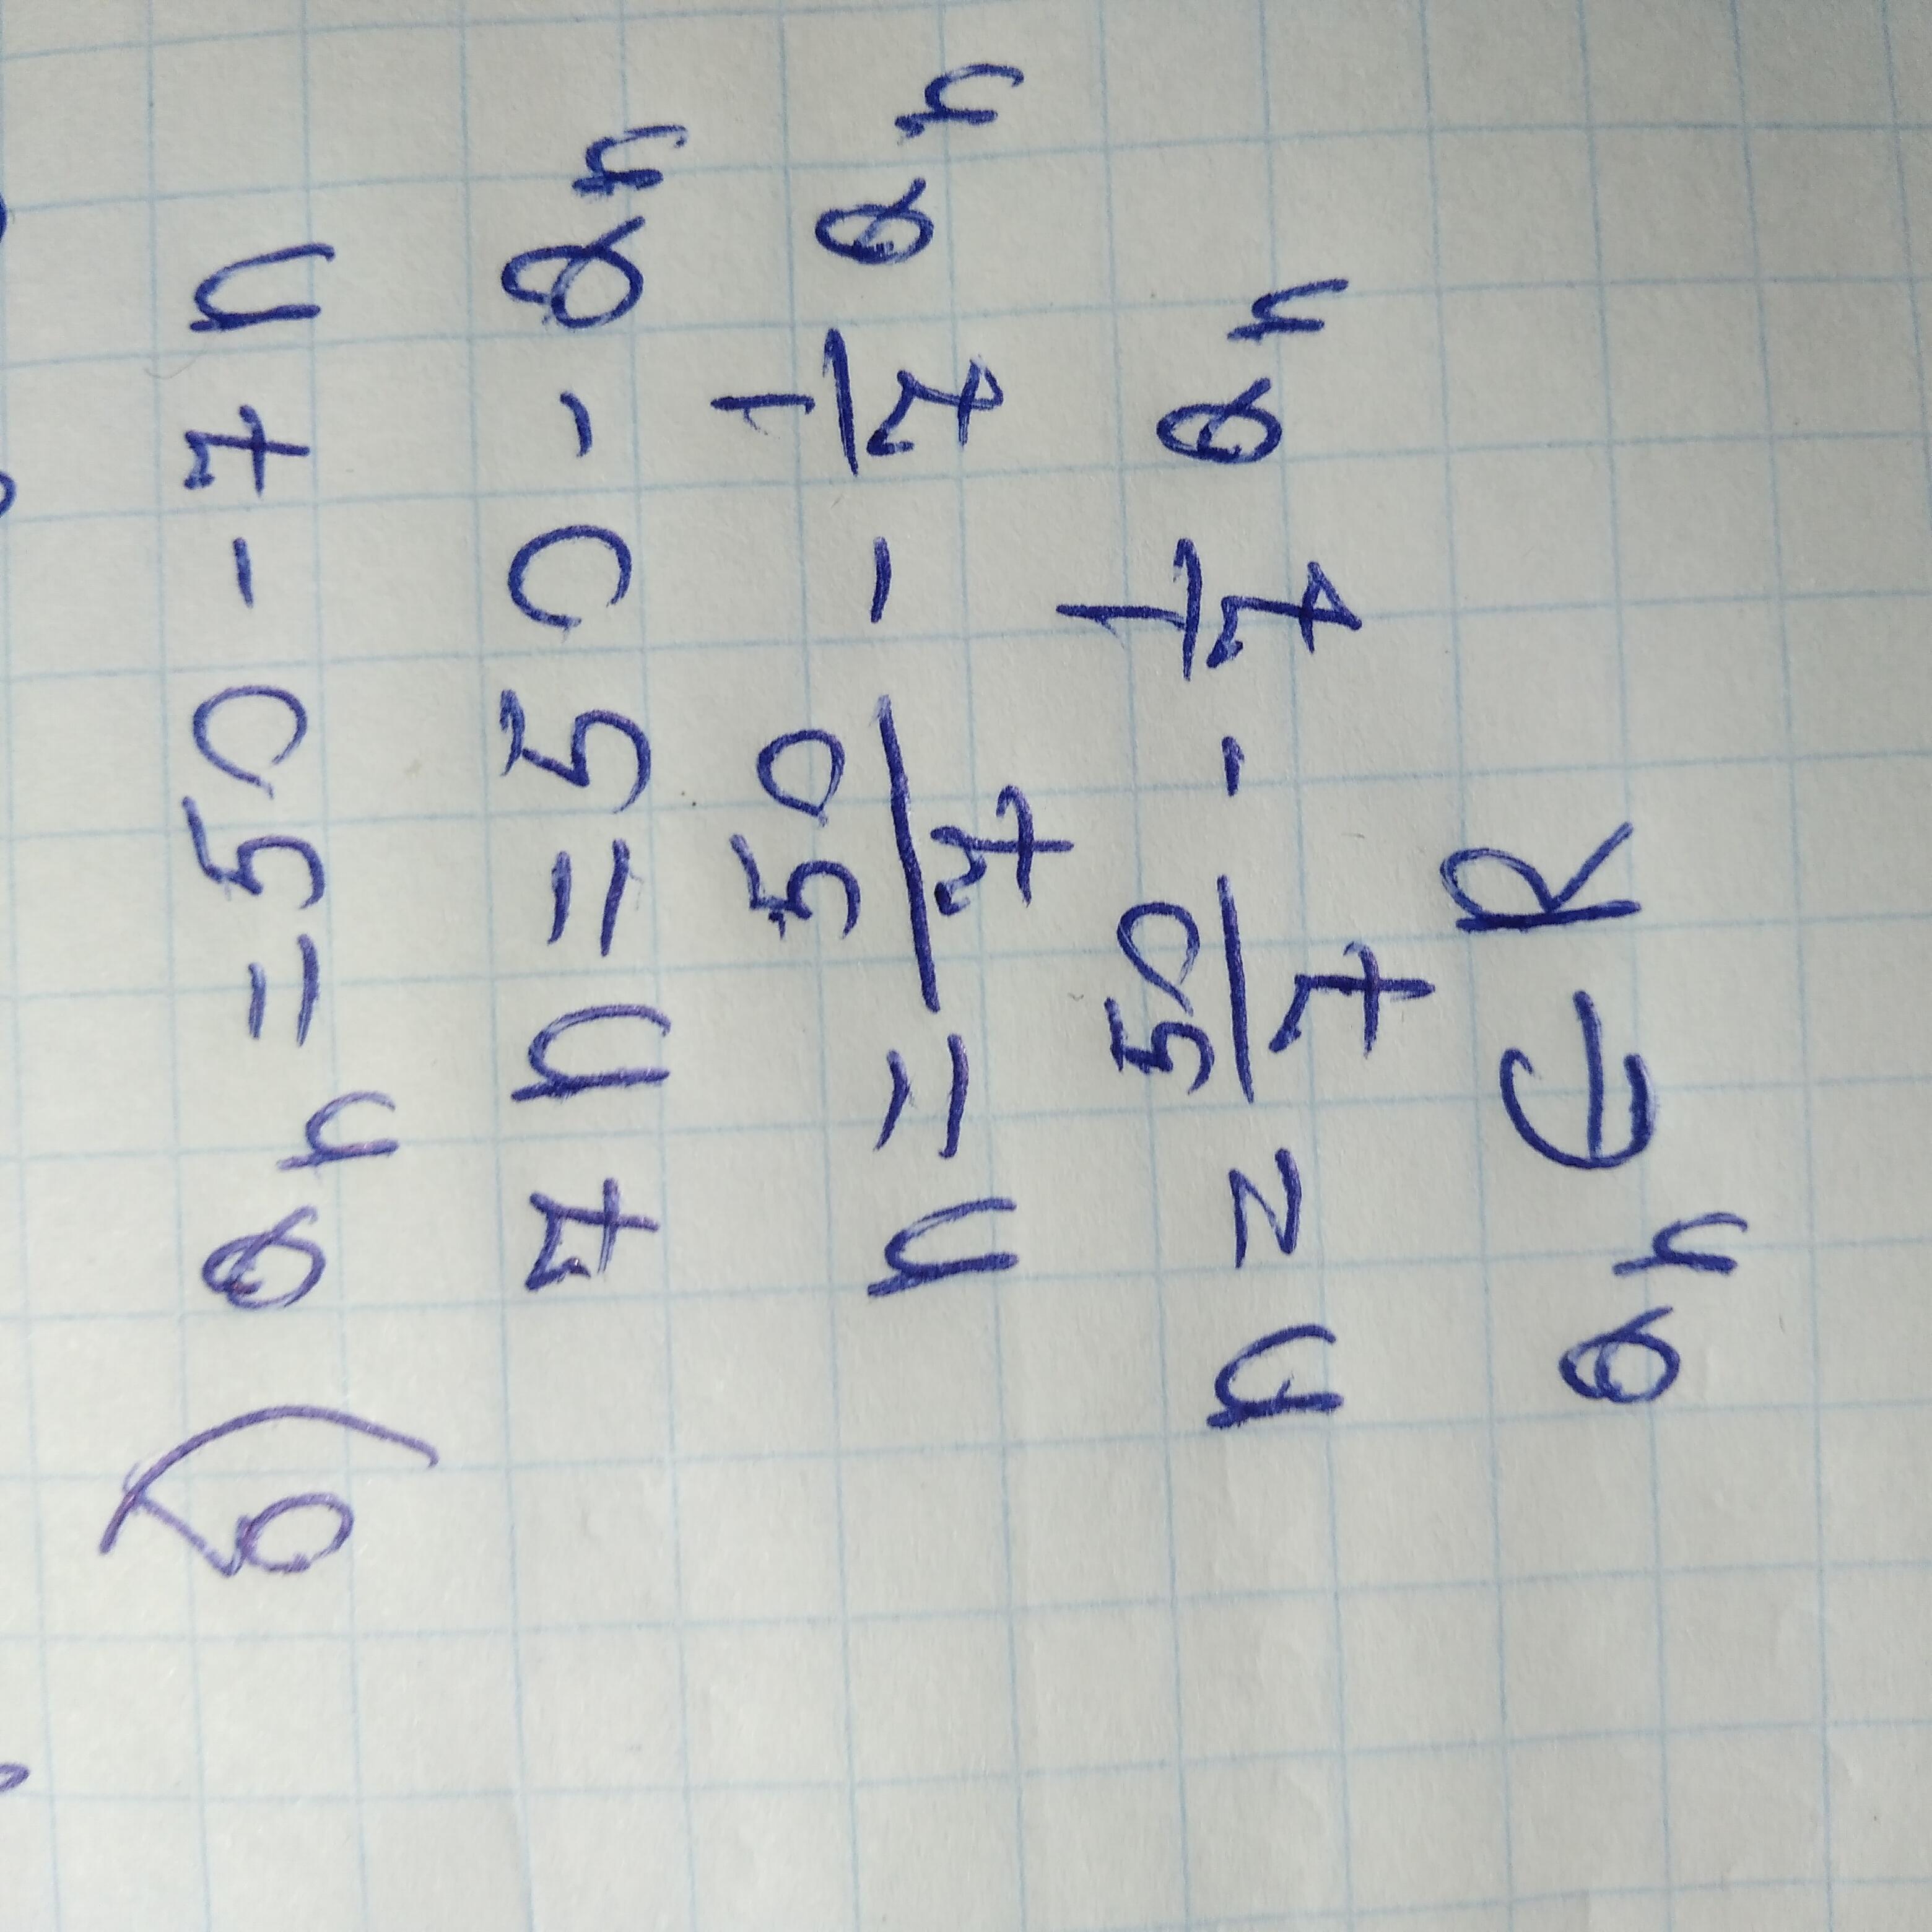 б) aₙ = 50 - 7n
7n = 50 - aₙ
n = 50/7 - 1/7 aₙ
n = 50/7 - 1/7 aₙ
aₙ ∈ R